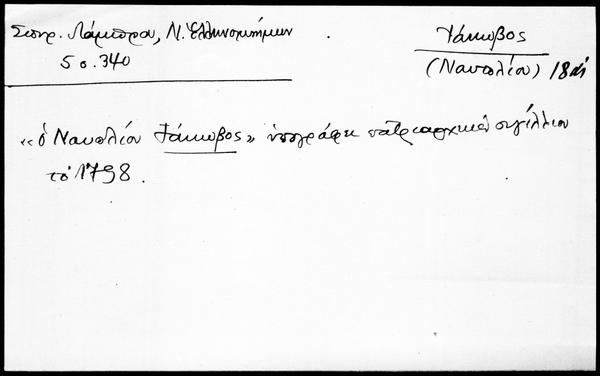 Σπυρ. Λάμπρου, Ν. Ἑλληνομνήμων
5 σ. 340
Ἰάκωβος
(Ναυπλίου) 18 αἰ
«ὁ Ναυπλίου Ἰάκωβος» ὑπογράφει πατριαρχικόν σιγίλλιον
τὸ 1798.